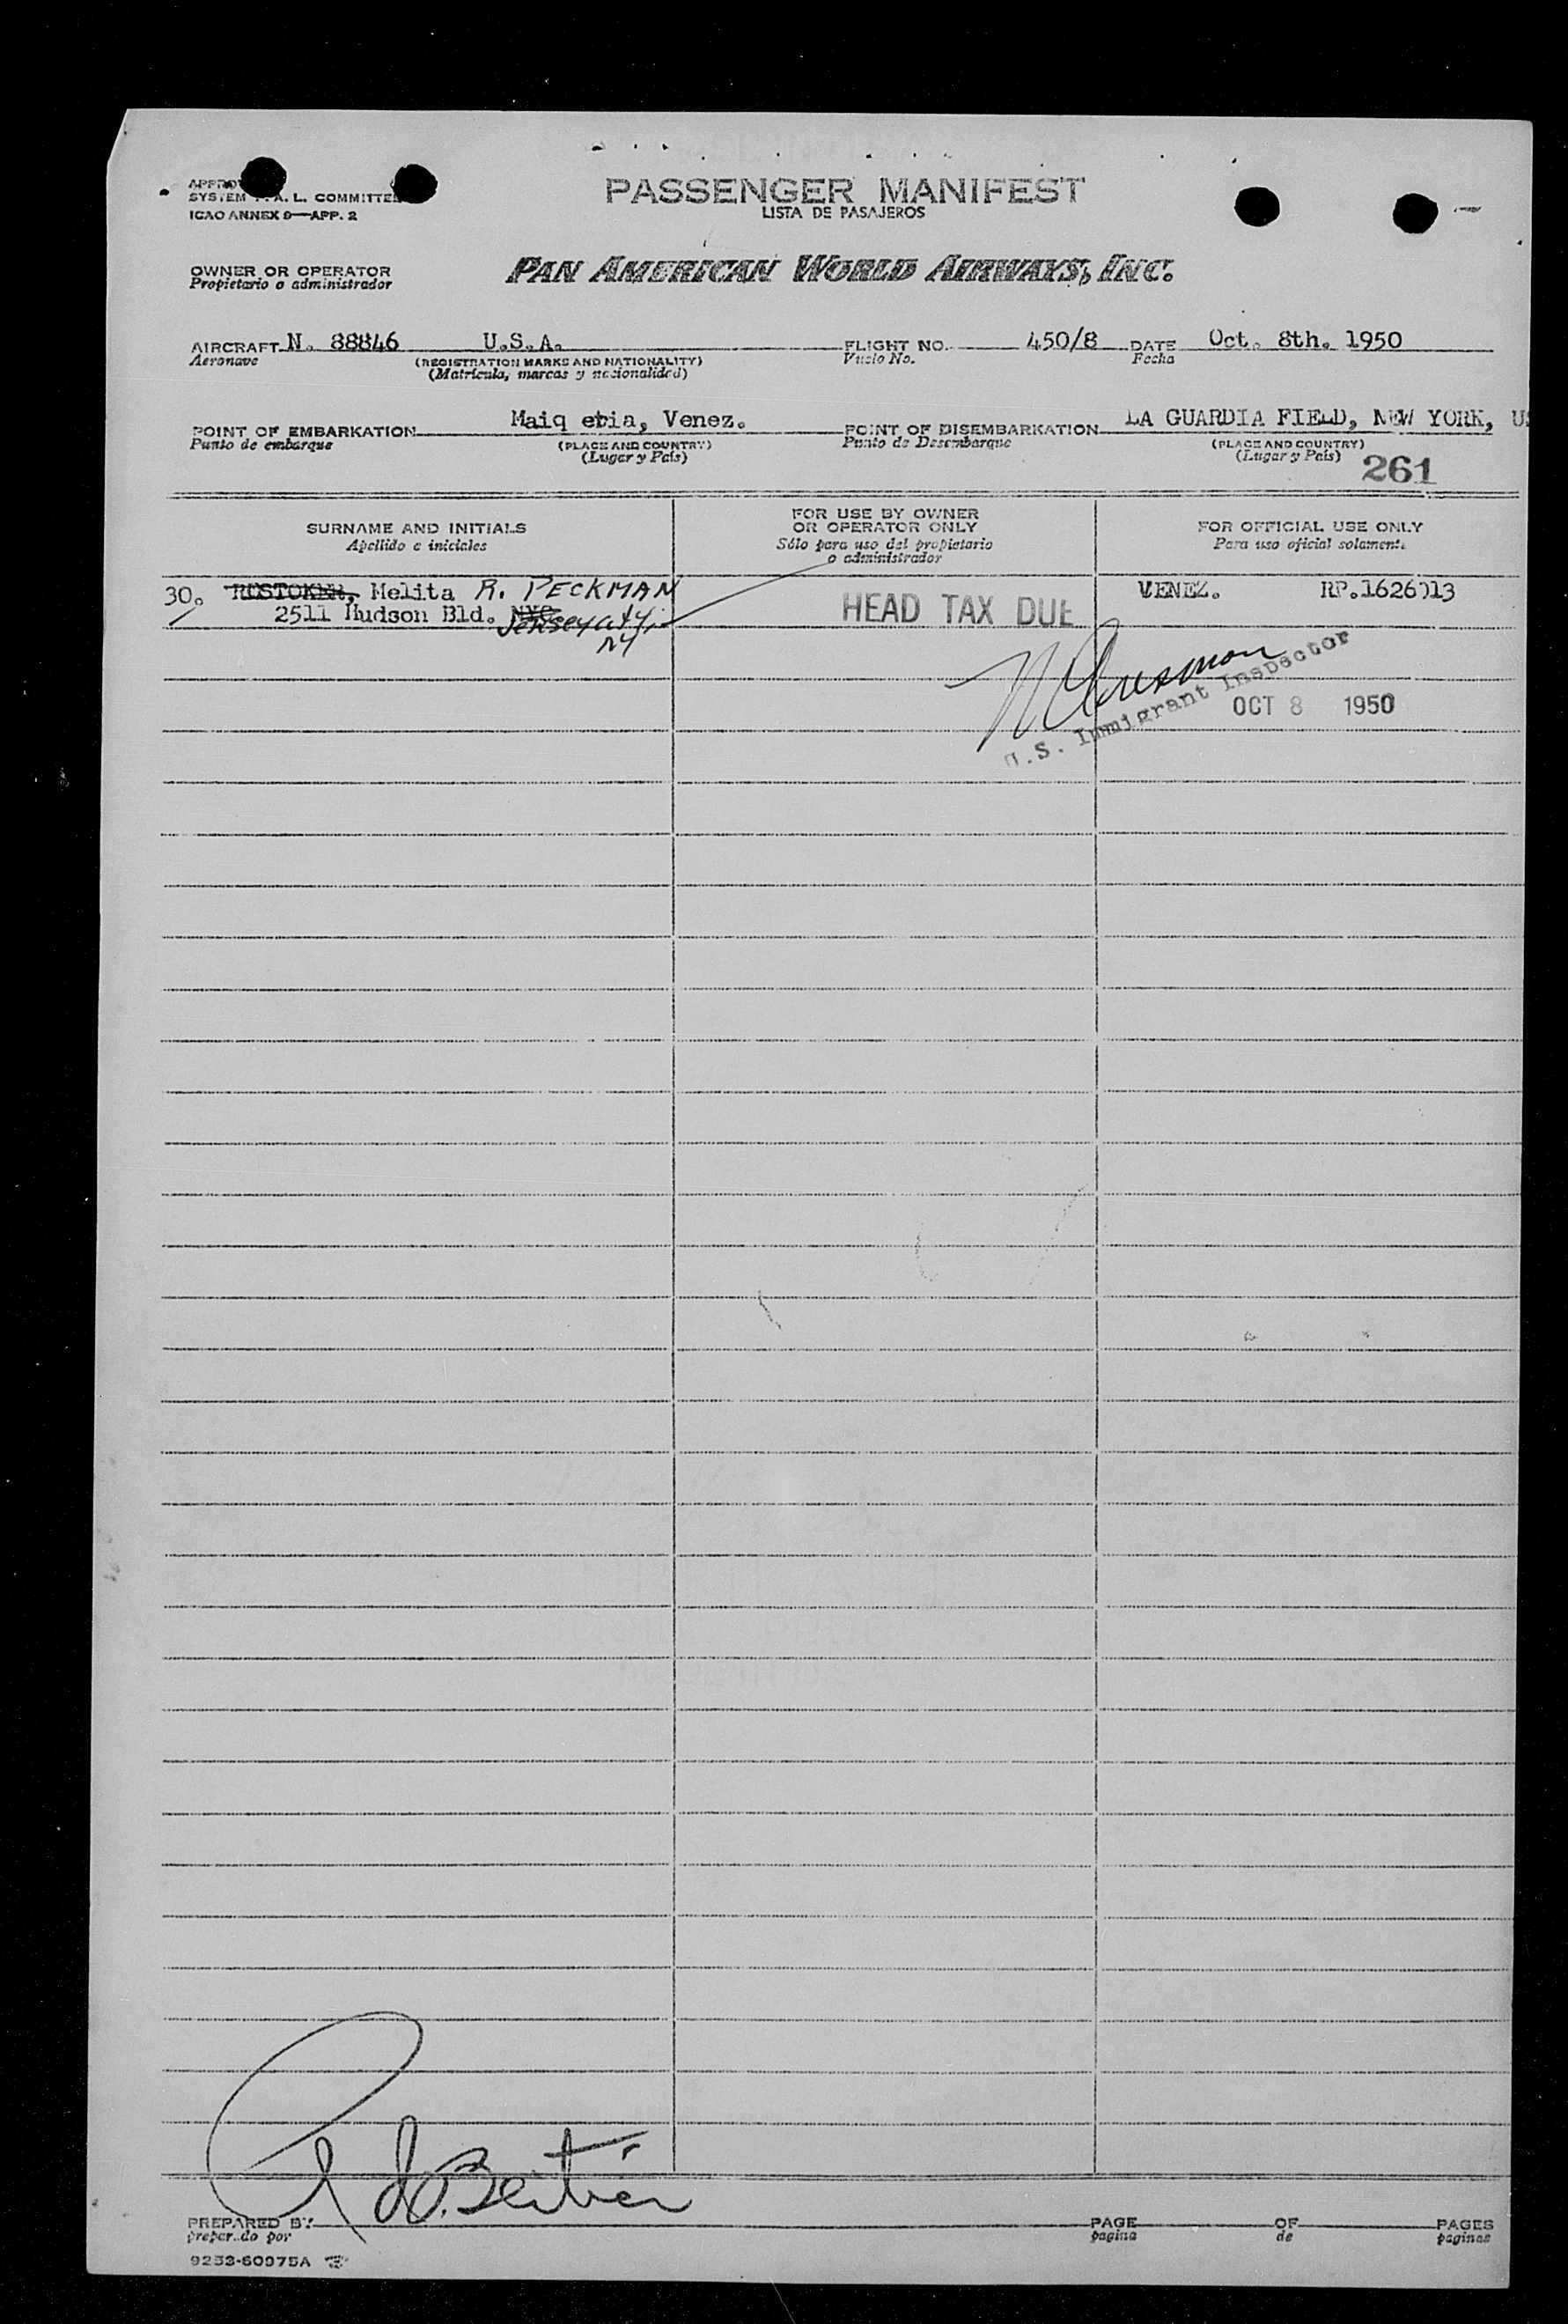 PASSENGER MANIFEST
LISTA DE PASAJEROS
SYSTEM A. L. COMMITTEE
ICAO ANNEX 9—APP. 2
OWNER OR OPERATOR
Propietario o administrador
PAN AMERICAN WORLD AIRWAYS, INC.
AIRCRAFT N. 88846 U.S.A. FLIGHT NO. 450/8 DATE Oct. 8th. 1950
Aeronave (REGISTRATION MARKS AND NATIONALITY) Vuelo No. Fecha
(Matrícula, marcas y nacionalidad)
POINT OF EMBARKATION Maiq etia, Venez. POINT OF DISEMBARKATION LA GUARDIA FIELD, NEW YORK, U
Punto de embarque (PLACE AND COUNTRY) Punto de Desembarque (PLACE AND COUNTRY)
(Lugar y País) (Lugar y País) 261
SURNAME AND INITIALS FOR USE BY OWNER OR OPERATOR ONLY FOR OFFICIAL USE ONLY
Apellido e iniciales Sólo para uso del propietario o administrador Para uso oficial solamente
30. Melita R. PECKMAN VENEZ. RP.1626013
2511 Hudson Bld. NYC Jersey City HEAD TAX DUE
NY
U.S. Immigrant Inspector
OCT 8 1950
PREPARED BY PAGE OF PAGES
preparado por pagina de paginas
9253-60975A